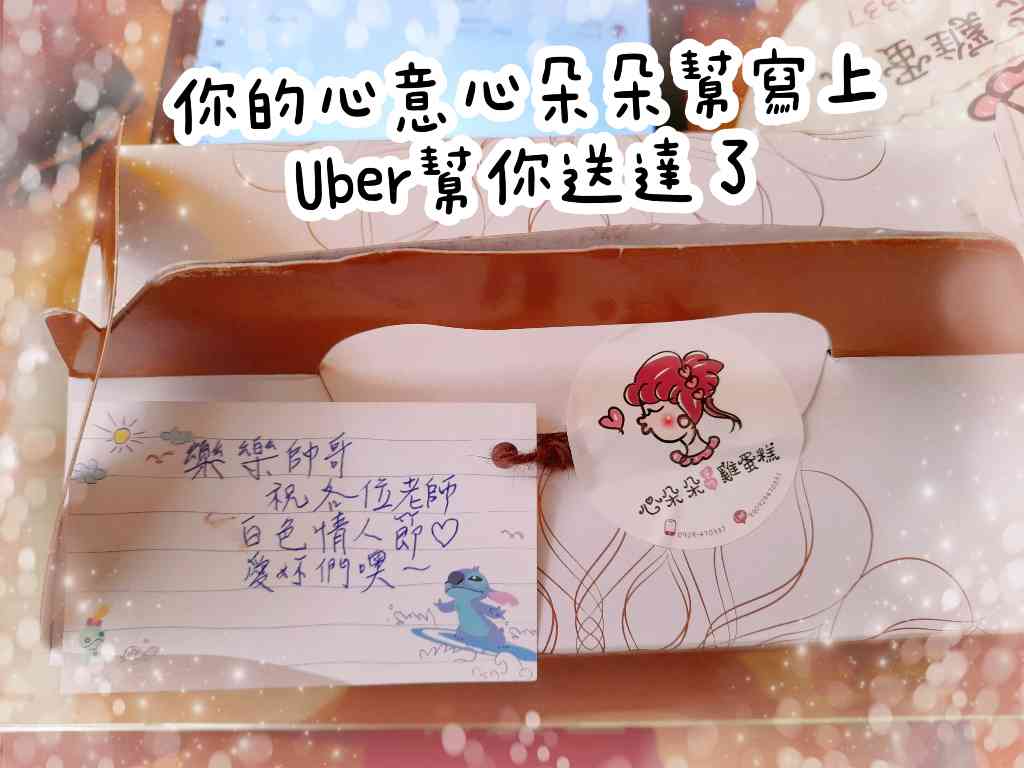 你的心意心朵朵幫寫上
Uber幫你送達了
雞蛋
樂樂帥哥
祝各位老師
白色情人節♡
愛妳們噢~
心朵朵雞蛋糕